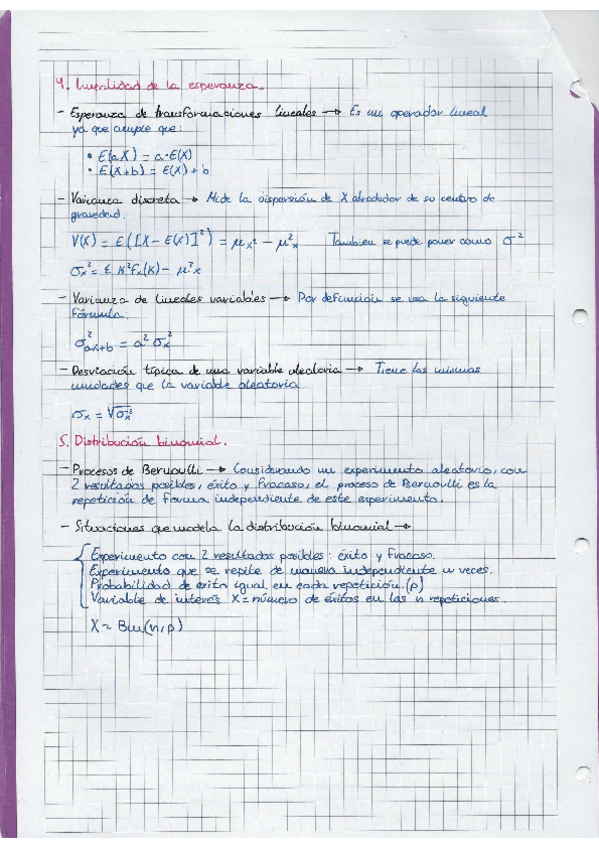 4. Linealidad de la esperanza.
- Esperanza de transformaciones lineales → Es un operador lineal
ya que cumple que:
• E(aX) = a·E(X)
• E(X+b) = E(X) + b
- Varianza discreta → Mide la dispersión de X alrededor de su centro de
gravedad.
V(X) = E([X - E(X)]²) = μx² - μ²x   Tambien se puede poner como σ²
σx² = Σ k² fx(k) - μ²x
- Varianza de lineales variables → Por definición se usa la siguiente
Fórmula.
σ²ax+b = a² σx²
- Desviación típica de una variable aleatoria → Tiene las mismas
unidades que la variable aleatoria
σx = √σx²
5. Distribución binomial.
- Procesos de Bernoulli → Considerando un experimento aleatorio, con
2 resultados posibles, éxito y fracaso, el proceso de Bernoulli es la
repetición de forma independiente de este experimento.
- Situaciones que modela la distribución binomial →
Experimento con 2 resultados posibles: éxito y fracaso.
Experimento que se repite de manera independiente n veces.
Probabilidad de exito igual en cada repetición. (p)
Variable de interés X = número de éxitos en las n repeticiones.
X ~ Bin(n,p)